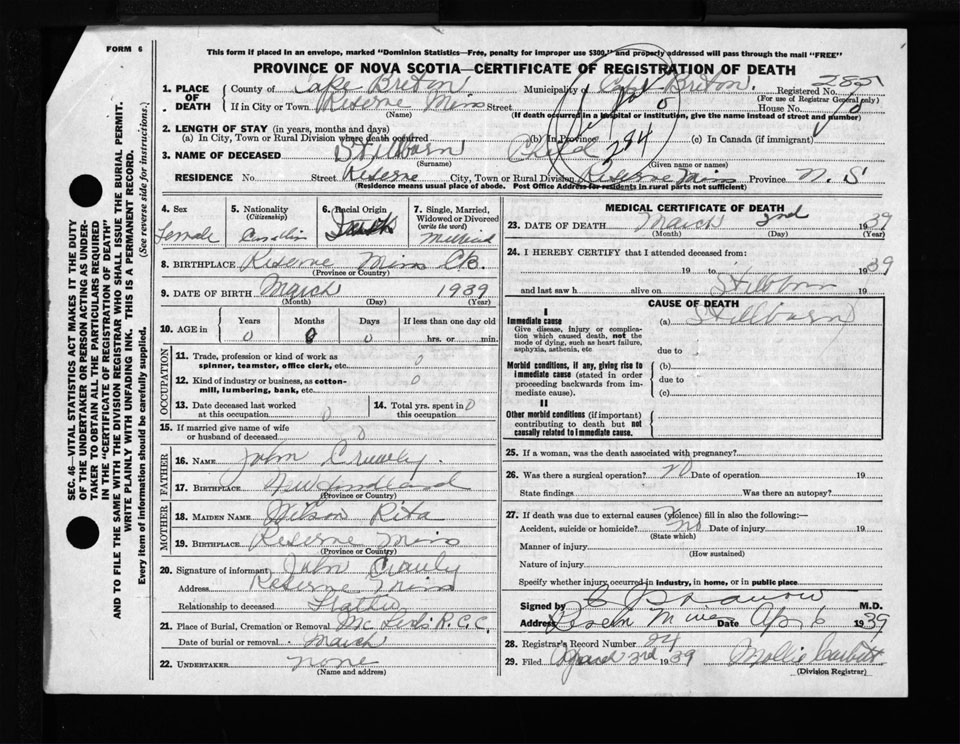 FORM 6
This form if placed in an envelope, marked "Dominion Statistics—Free, penalty for improper use $300," and properly addressed will pass through the mail "FREE"
PROVINCE OF NOVA SCOTIA—CERTIFICATE OF REGISTRATION OF DEATH
SEC. 46—VITAL STATISTICS ACT MAKES IT THE DUTY
OF THE UNDERTAKER OR PERSON ACTING AS UNDER-
TAKER TO OBTAIN ALL THE PARTICULARS REQUIRED
IN THE "CERTIFICATE OF REGISTRATION OF DEATH"
AND TO FILE THE SAME WITH THE DIVISION REGISTRAR WHO SHALL ISSUE THE BURIAL PERMIT.
WRITE PLAINLY WITH UNFADING INK. THIS IS A PERMANENT RECORD.
Every item of information should be carefully supplied. (See reverse side for instructions.)
1. PLACE OF DEATH
County of Cape Breton Municipality of Cape Breton. Registered No. 285
(For use of Registrar General only)
If in City or Town Reserve Mines Street House No.
(Name) (If death occurred in a hospital or institution, give the name instead of street and number)
2. LENGTH OF STAY (in years, months and days)
(a) In City, Town or Rural Division where death occurred (b) In Province (c) In Canada (if immigrant)
294
3. NAME OF DECEASED Stillborn Child
(Surname) (Given name or names)
RESIDENCE No. Street Reserve City, Town or Rural Division Reserve Mines Province N. S
(Residence means usual place of abode. Post Office Address for residents in rural parts not sufficient)
4. Sex Female
5. Nationality (Citizenship) Canadian
6. Racial Origin
7. Single, Married, Widowed or Divorced (write the word)
8. BIRTHPLACE Reserve Mines C/B.
(Province or Country)
9. DATE OF BIRTH March 1939
(Month) (Day) (Year)
10. AGE in Years Months Days If less than one day old
0 0 0 hrs. or min.
OCCUPATION
11. Trade, profession or kind of work as spinner, teamster, office clerk, etc. 0
12. Kind of industry or business, as cotton-mill, lumbering, bank, etc. 0
13. Date deceased last worked at this occupation 0
14. Total yrs. spent in this occupation 0
15. If married give name of wife or husband of deceased 0
FATHER
16. NAME John Crawly
17. BIRTHPLACE Newfoundland
(Province or Country)
MOTHER
18. MAIDEN NAME Wilson Rita
19. BIRTHPLACE Reserve Mines
(Province or Country)
20. Signature of informant John Crawly
Address Reserve Mines
Relationship to deceased Father
21. Place of Burial, Cremation or Removal R.C.C.
Date of burial or removal March
22. UNDERTAKER none
(Name and address)
MEDICAL CERTIFICATE OF DEATH
23. DATE OF DEATH March 2nd 1939
(Month) (Day) (Year)
24. I HEREBY CERTIFY that I attended deceased from:
19 to 1939
and last saw h alive on Stillborn 19
CAUSE OF DEATH
I
Immediate cause (a) Stillborn
Give disease, injury or complica-
tion which caused death, not the
mode of dying, such as heart failure,
asphyxia, asthenia, etc
due to
Morbid conditions, if any, giving rise to (b)
immediate cause (stated in order due to
proceeding backwards from im-
mediate cause). (c)
II
Other morbid conditions (if important)
contributing to death but not
causally related to immediate cause.
25. If a woman, was the death associated with pregnancy?
26. Was there a surgical operation? no Date of operation 19
State findings Was there an autopsy?
27. If death was due to external causes (violence) fill in also the following:—
Accident, suicide or homicide? no Date of injury 19
(State which)
Manner of injury
(How sustained)
Nature of injury
Specify whether injury occurred in industry, in home, or in public place
Signed by M.D.
Address Date Apr 6 1939
28. Registrar's Record Number 24
29. Filed 3rd 1939 Mollie
(Division Registrar)